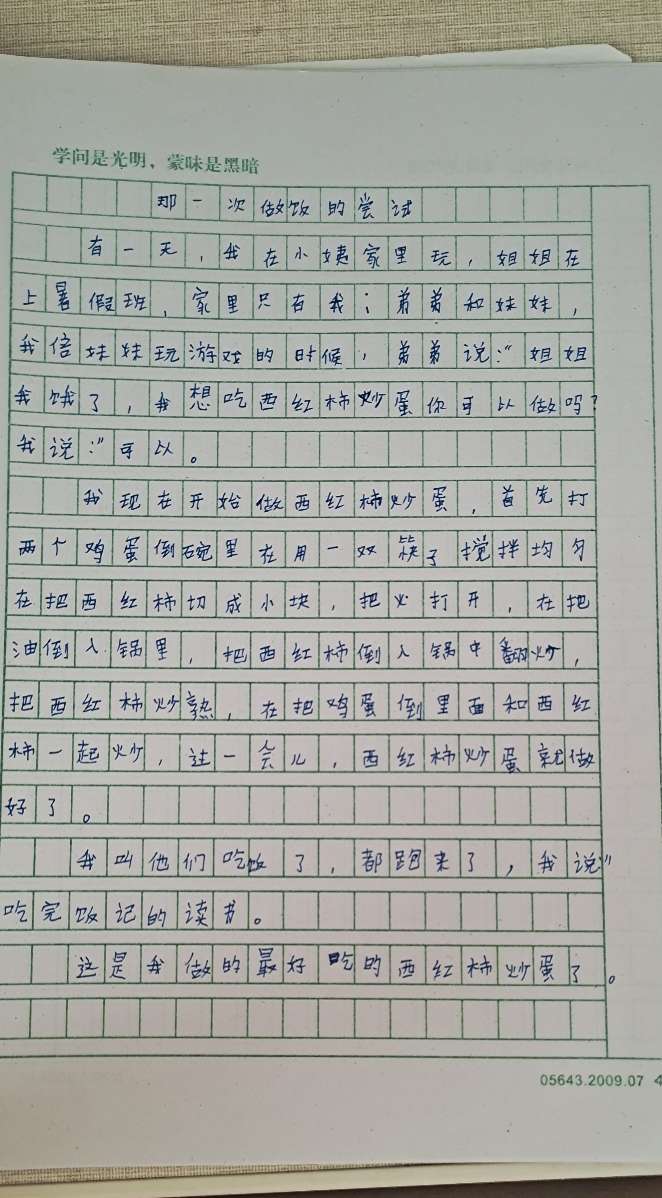 学问是光明，蒙昧是黑暗
那一次做饭的尝试
有一天，我在小姨家里玩，姐姐在
上暑假班，家里只有我；弟弟和妹妹，
我倍妹妹玩游戏的时候，弟弟说:“姐姐
我饿了，我想吃西红柿炒蛋你可以做吗？
我说:“可以。
我现在开始做西红柿炒蛋，首先打
两个鸡蛋倒碗里在用一双筷子搅拌均匀
在把西红柿切成小块，把火打开，在把
油倒入锅里，把西红柿倒入锅中翻炒，
把西红柿炒熟，在把鸡蛋倒里面和西红
柿一起炒，过一会儿，西红柿炒蛋就做
好了。
我叫他们吃饭了，都跑来了，我说“
吃完饭记的读书。
这是我做的最好吃的西红柿炒蛋了。
05643.2009.07 4